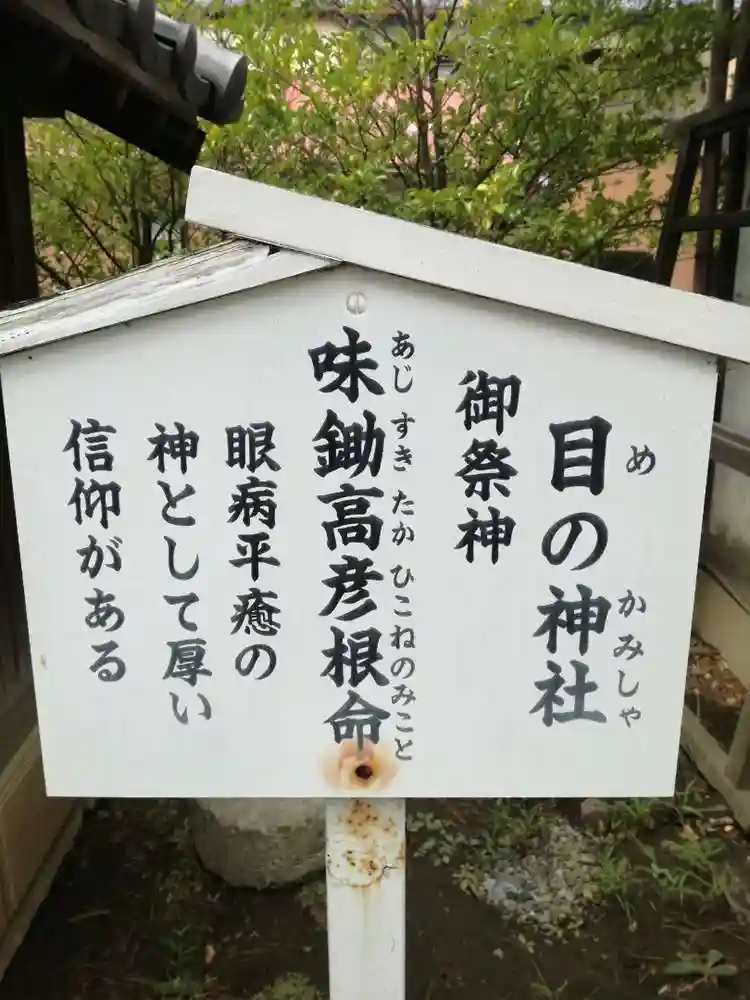 目の神社
め かみしゃ
御祭神
味鋤高彦根命
あじ すき たか ひこ ねのみこと
眼病平癒の
神として厚い
信仰がある